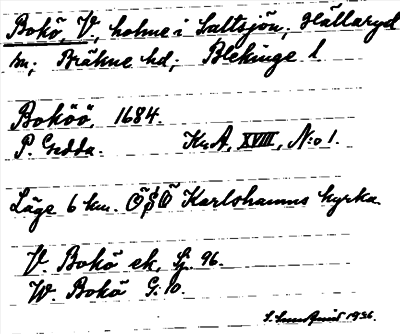 Bokö, V., holme i Saltsjön, Hällaryd
sn; Bräkne hd; Blekinge l
Boköö, 1684.
P. Gedda. Kr.A, XVIII, N:o 1.
Läge 6 km. ÖSÖ Karlshamns kyrka
V. Bokö ek, Sj. 96.
W. Bokö G. 10.
1936.